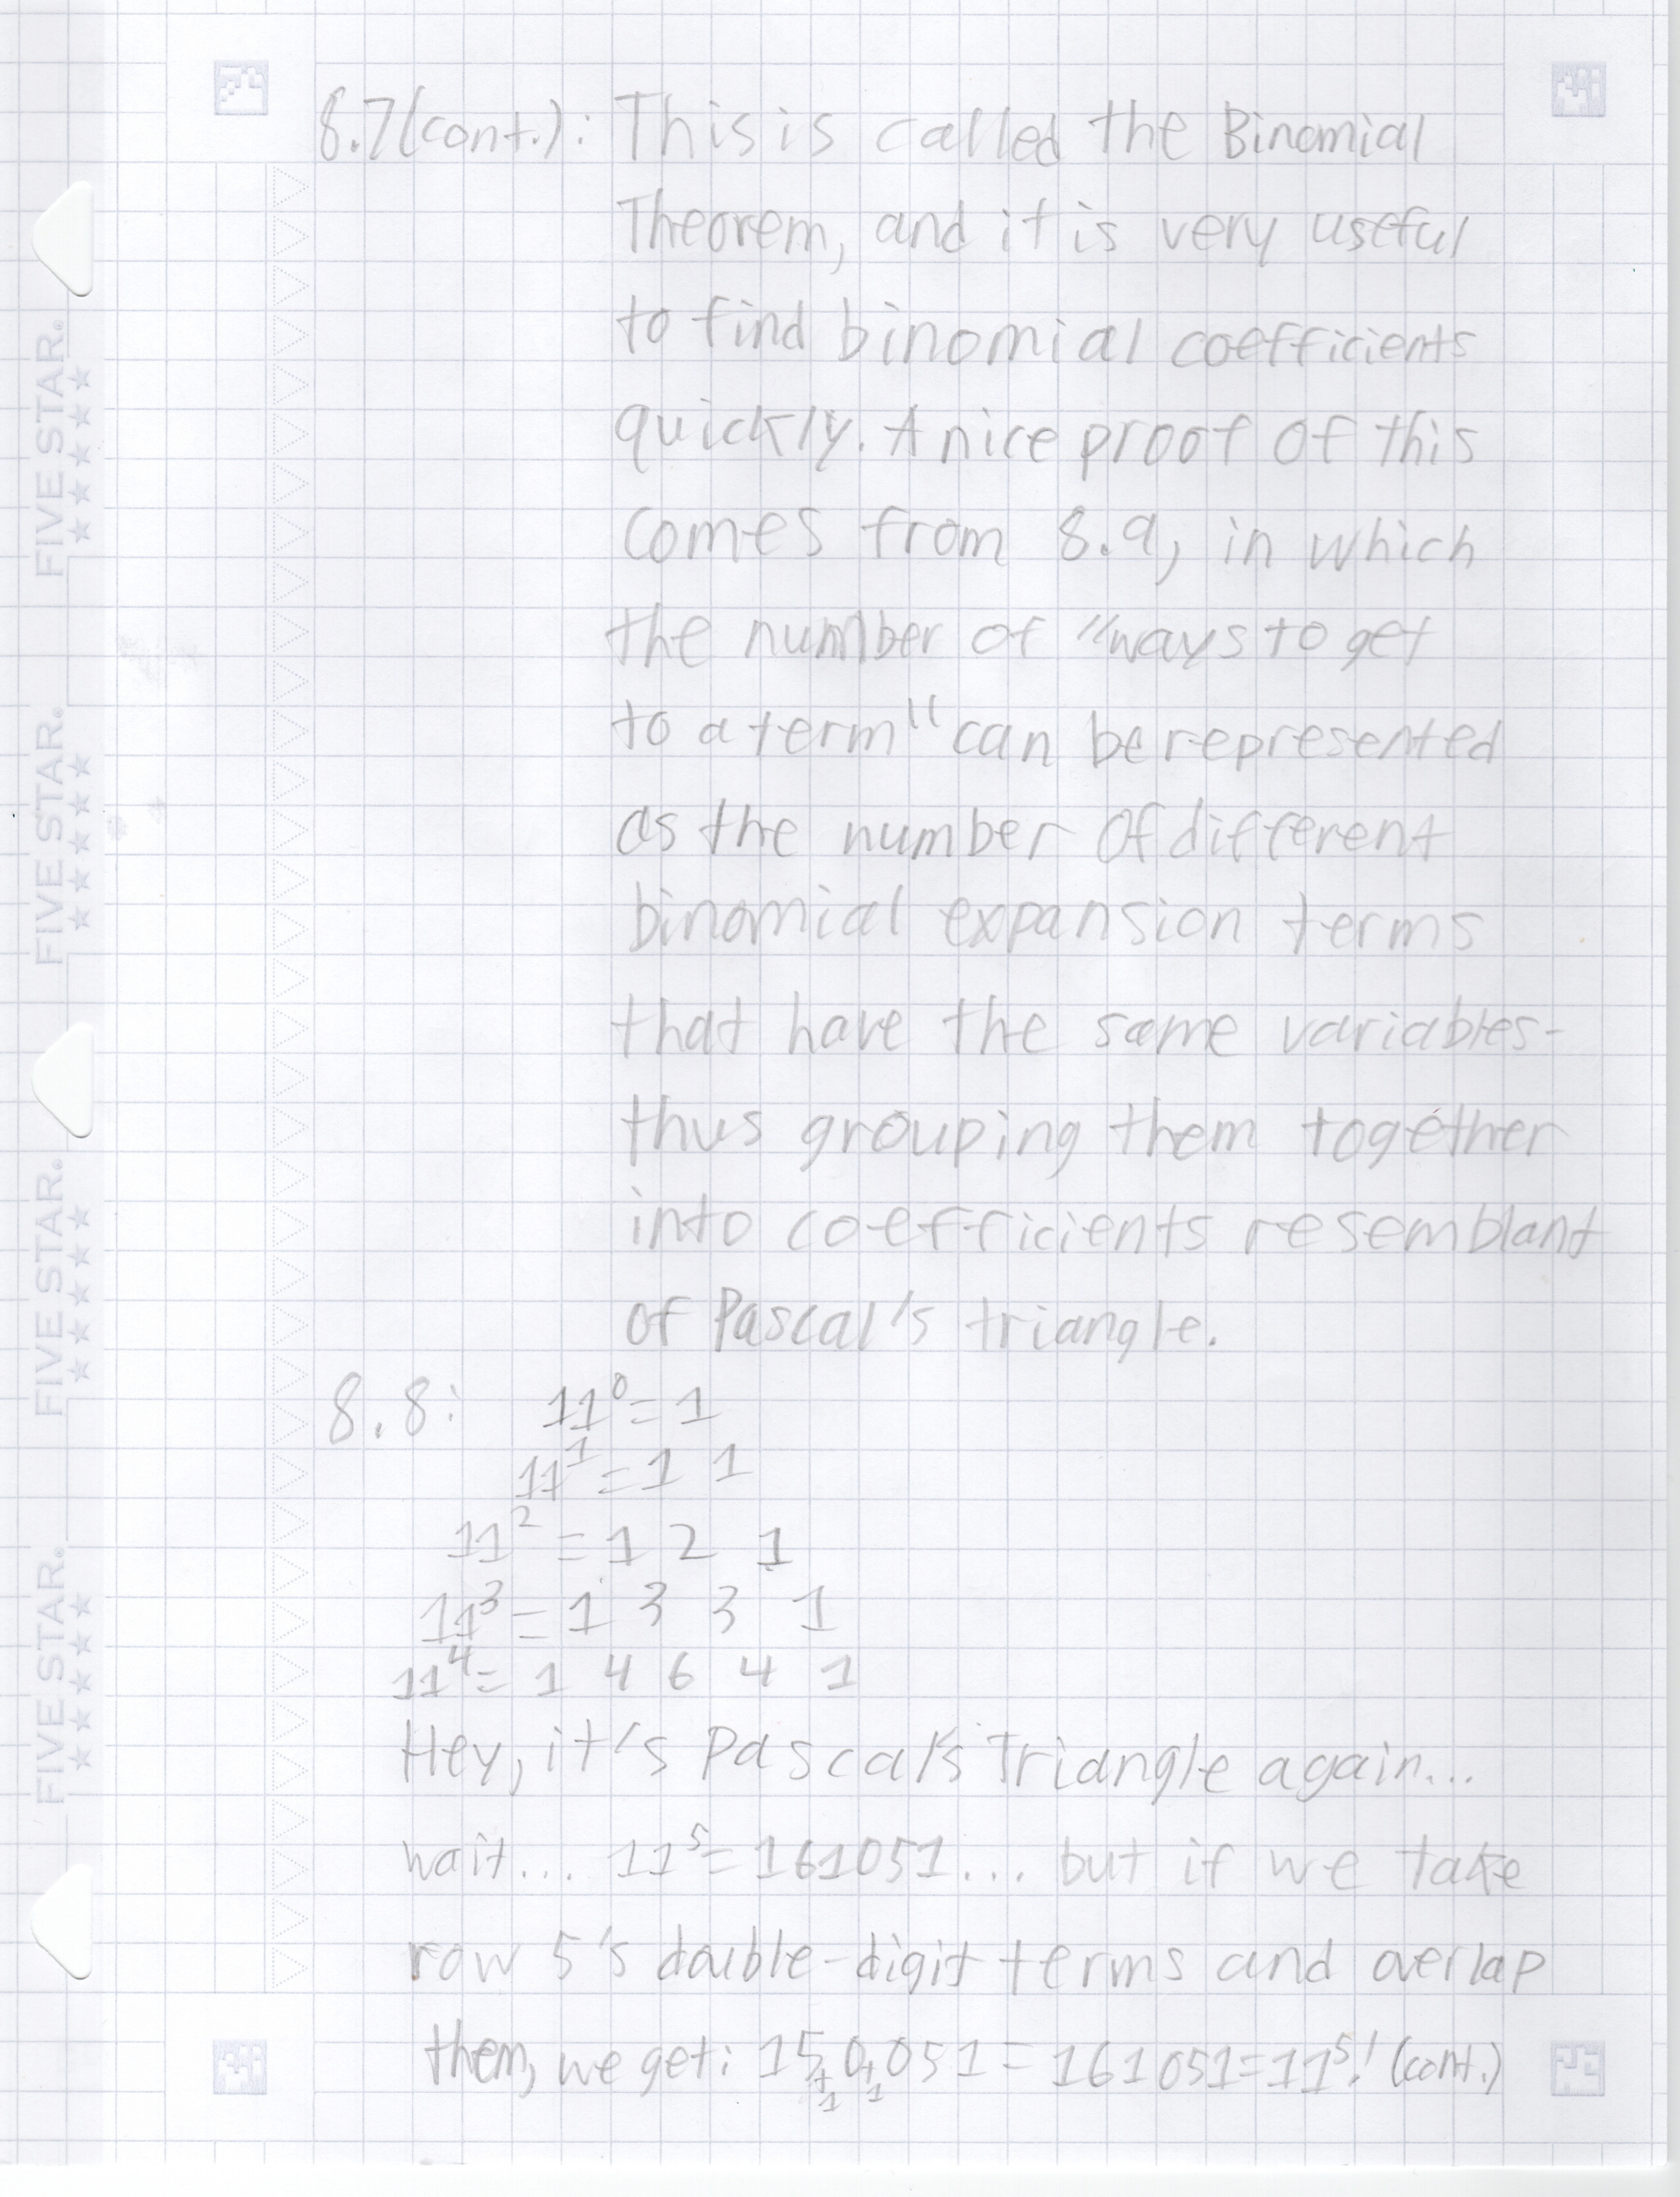 8.7(cont.): This is called the Binomial
Theorem, and it is very useful
to find binomial coefficients
quickly. A nice proof of this
comes from 8.9, in which
the number of "ways to get
to a term" can be represented
as the number of different
binomial expansion terms
that have the same variables-
thus grouping them together
into coefficients resemblant
of Pascal's triangle.
8.8: 11⁰=1
11¹=1 1
11²=1 2 1
11³=1 3 3 1
11⁴=1 4 6 4 1
Hey, it's Pascal's Triangle again...
wait... 11⁵=161051... but if we take
row 5's double-digit terms and overlap
them, we get: 15 0 051=161051=11⁵! (cont.)
+1 +1
FIVE STAR.
FIVE STAR.
FIVE STAR.
FIVE STAR.